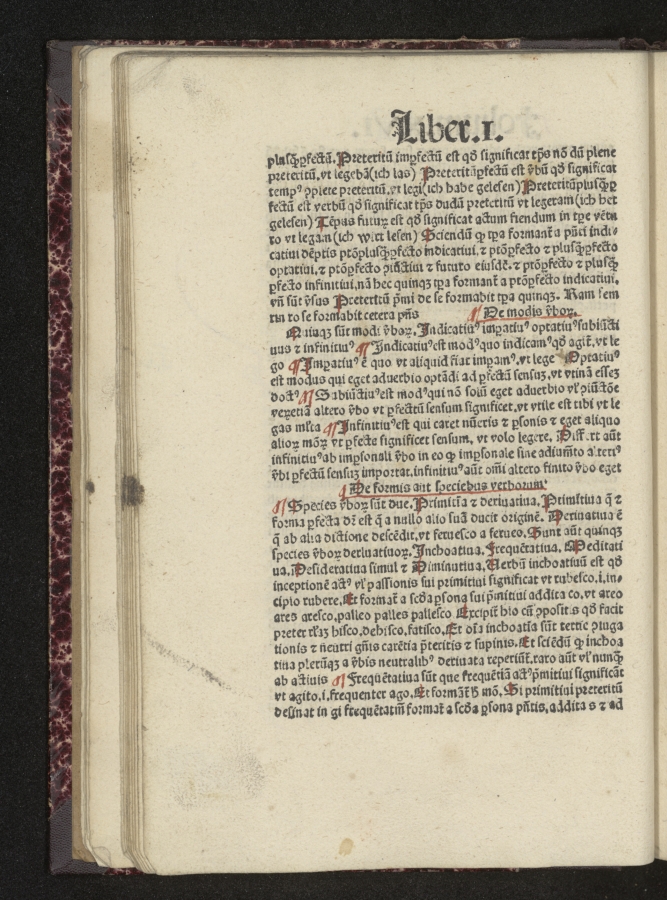 Liber.1.
plusq̃ꝑfectũ. Preteritũ imꝑfectũ est qđ significat tp̃s nõ dũ plene
preteritũ, vt legebã(ich las) Preteritũꝑfectũ est v̓bũ qđ significat
tempꝰ ꝯplete preteritũ, vt legi(ich habe gelesen) Preteritũplusq̃ꝑ
fectũ est verbũ qđ significat tp̃s dudũ preteritũ vt legeram(ich het
gelesen) Tẽpus futurũ est qđ significat actum fiendum in tꝑe vẽtu
ro vt legam(ich wirt lesen) Sciendũ ꝙ tꝑa formant̃ a p̃ñti indi-
catiui dẽptis p̃tõplusq̃ꝑfecto indicatiui, ⁊ p̃tõꝑfecto ⁊ plusq̃ꝑfecto
optatiui, ⁊ p̃tõꝑfecto ꝯiũctiui ⁊ futuro eiusdẽ. ⁊ p̃tõꝑfecto ⁊ plusq̃
ꝑfecto infinitiui, nã hec quinqꝫ tꝑa formant̃ a p̃tõꝑfecto indicatiui,
vñ sũt v̓sus Preteritũ p̃mi de se formabit tꝑa quinqꝫ. Ram rem
rin ro se formabit cetera p̃ñs ¶ De modis v̓boꝝ.
Quinqꝫ sũt modi v̓boꝝ. Indicatiuꝰ imꝑatiuꝰ optatiuꝰ subiũcti
uus ⁊ infinitiuꝰ ¶ Indicatiuꝰ est modꝰ quo indicamꝰ qđ agit̃, vt le
go ¶ Imꝑatiuꝰ ẽ quo vt aliquid fiat imꝑamꝰ, vt lege Optatiuꝰ
est modus qui eget aduerbio optãdi ad ꝑfectũ sensuꝫ, vt vtinã esseꝫ
doctꝰ ¶ Subiũctiuꝰ est modꝰ qui nõ solũ eget aduerbio vl̓ ꝯiũctõe
veꝝetiã altero v̓bo vt ꝑfectũ sensum significet, vt vtile est tibi vt le
gas ml̃ta ¶ Infinitiuꝰ est qui caret nũeris ⁊ ꝑsonis ⁊ eget aliquo
alioꝝ moꝝ vt ꝑfecte significet sensum, vt volo legere. Differt aũt
infinitiuꝰ ab imꝑsonali v̓bo in eo ꝙ imꝑsonale sine adiumẽto alteriꝰ
v̓bi ꝑfectũ sensuꝫ importat, infinitiuꝰ aũt om̃i altero finito v̓bo eget
¶ De formis aut speciebus verborum.
¶ Species v̓boꝝ sũt due. Primitiua ⁊ deriuatiua. Primitiua q̃ ⁊
forma ꝑfecta dr̃ est q̃ a nullo alio suã ducit originẽ. Deriuatiua ẽ
q̃ ab alia dictione descẽdit, vt feruesco a ferueo. Sunt aũt quinqꝫ
species v̓boꝝ deriuatiuoꝝ. Inchoatiua. Frequẽtatiua. Meditati
ua. Desideratiua simul ⁊ Diminutiua. Verbũ inchoatiuũ est qđ
inceptionẽ actꝰ vl̓ passionis sui primitiui significat vt rubesco, i, in-
cipio rubere. Et format̃ a scd̃a ꝑsona sui p̃mitiui addita co, vt areo
ares aresco, palleo palles pallesco Excipit̃ hio cũ ꝯpositis qđ facit
preter rl̃aꝫ hisco, dehisco, fatisco. Et oĩa inchoatĩa sũt tertie ꝯiuga
tionis ⁊ neutri gñis carẽtia p̃teritis ⁊ supinis. Et sciẽdũ ꝙ inchoa
tiua plerũqꝫ a v̓bis neutralibꝰ deriuata reperiũt̃, raro aũt vl̓ nunq̃
ab actiuis ¶ Frequẽtatiua sũt que frequẽtiã actꝰ p̃mitiui significãt
vt agito, i, frequenter ago. Et formãt̃ h̓ mõ. Si primitiui preteritũ
desinat in gi frequẽtatiuũ format̃ a scd̃a ꝑsona p̃ñtis, addita s ⁊ ad